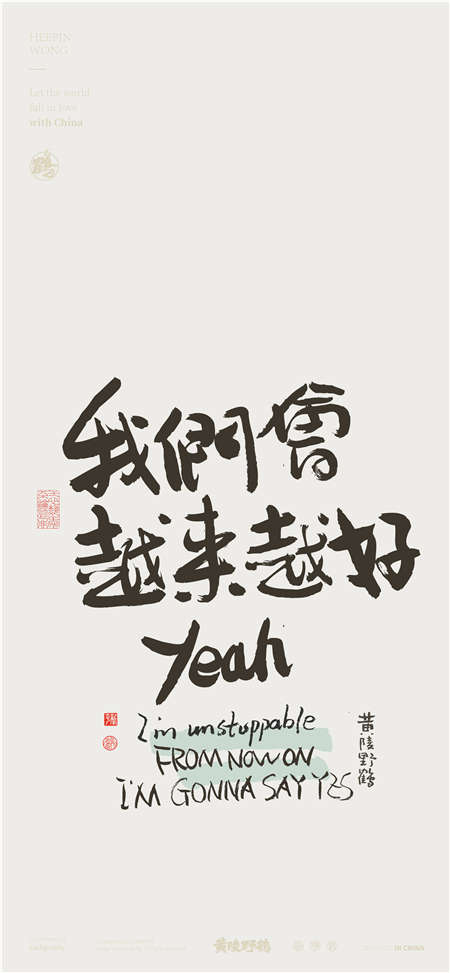 HEEPIN
WONG
Let the world
fall in love
with China
鹤
我們會
越来越好
yeah
I'm unstuppable
FROM NOW ON
I'M GONNA SAY YES
黄陵野鹤
黄陵野鹤
IN CHINA